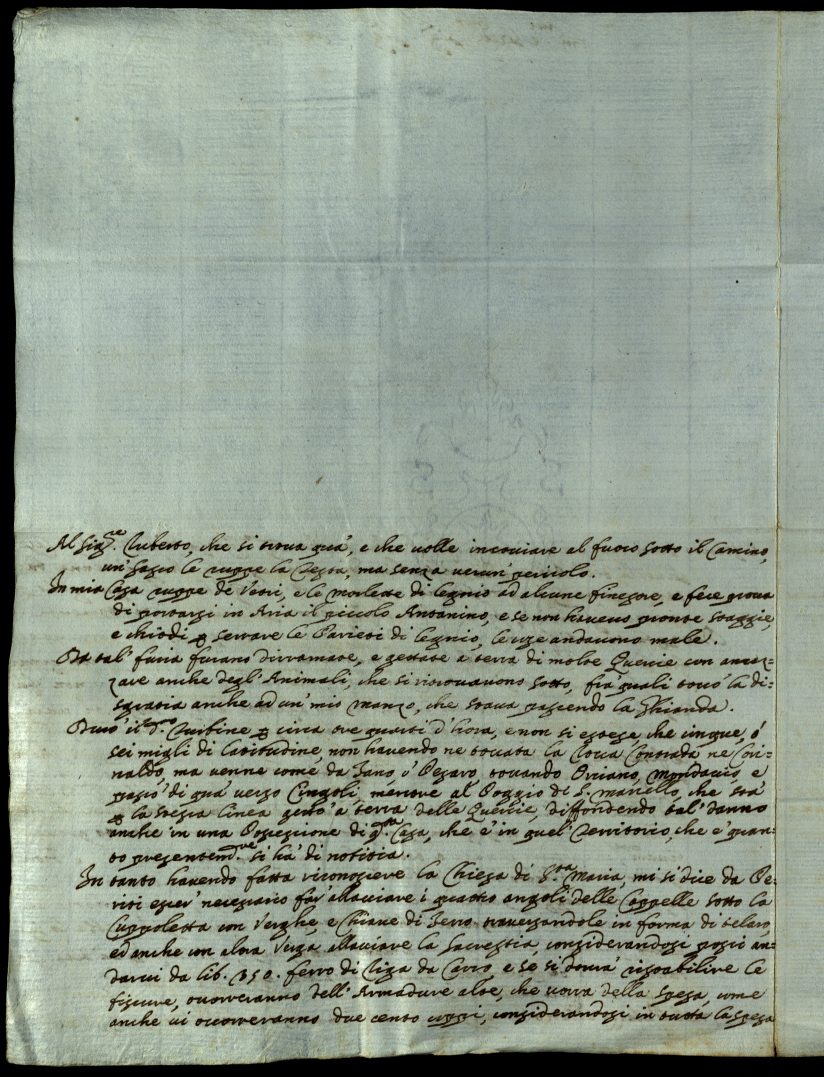 Al Sig.re Ruberto, che si trova quà, e che volle incoviare al fuoco sotto il Camino,
un' sasso le ruppe la Testa, ma senza verun' pericolo.
In mia Casa ruppe de Vetri, e le morlette di legnio ad alcune finestre, e fece prova
di portarsi in Aria il piccolo Antonino, e se non havevo pronte staggie,
e chiodi p serrare le Parieti di legnio, le cose andavono male.
Da tal' furia furano dirramate, e gettate à terra di molte Quercie con amaz=
zare anche degl' Animali, che si ritrovavono sotto, frà quali toccò la di=
sgratia anche ad un' mio manzo, che stava pascendo la Ghianda.
Durò il d.o Turbine p circa tre quarti d'hora, e non si estese che cinque, ò
sei migli di latitudine, non havendo ne toccata la Rocca Contrada ne Cori=
naldo, ma venne come da Fano, ò Pesaro toccando Orciano, Mondavio, e
passò di quà verso Cingoli, mentre al Poggio di S. Marcello, che stà
p la stessa linea gettò à terra delle Quercie, diffondendo tal' danno
anche in una Possessione di q.sta Casa, che è in quel Territorio, che è quan=
to presentem.te si hà di notitia.
In tanto havendo fatta riconoscere la Chiesa di S.ta Maria, mi si dice da Pe=
riti esser necessario far' allacciare i quattro angoli delle Cappelle sotto la
Cuppoletta con Verghe, e Chiave di Ferro traversandole in forma di telaro,
ed anche con altra Verga allacciare la Sacrestia, considerandosi possi an=
darvi da lib. 350. ferro di Riga da Carro, e se si dovrà ristabilire le
fissure, occorreranno dell' Armadure alte, che vorrà della spesa, come
anche vi occorreranno due cento coppi, considerandosi in tutta la spesa